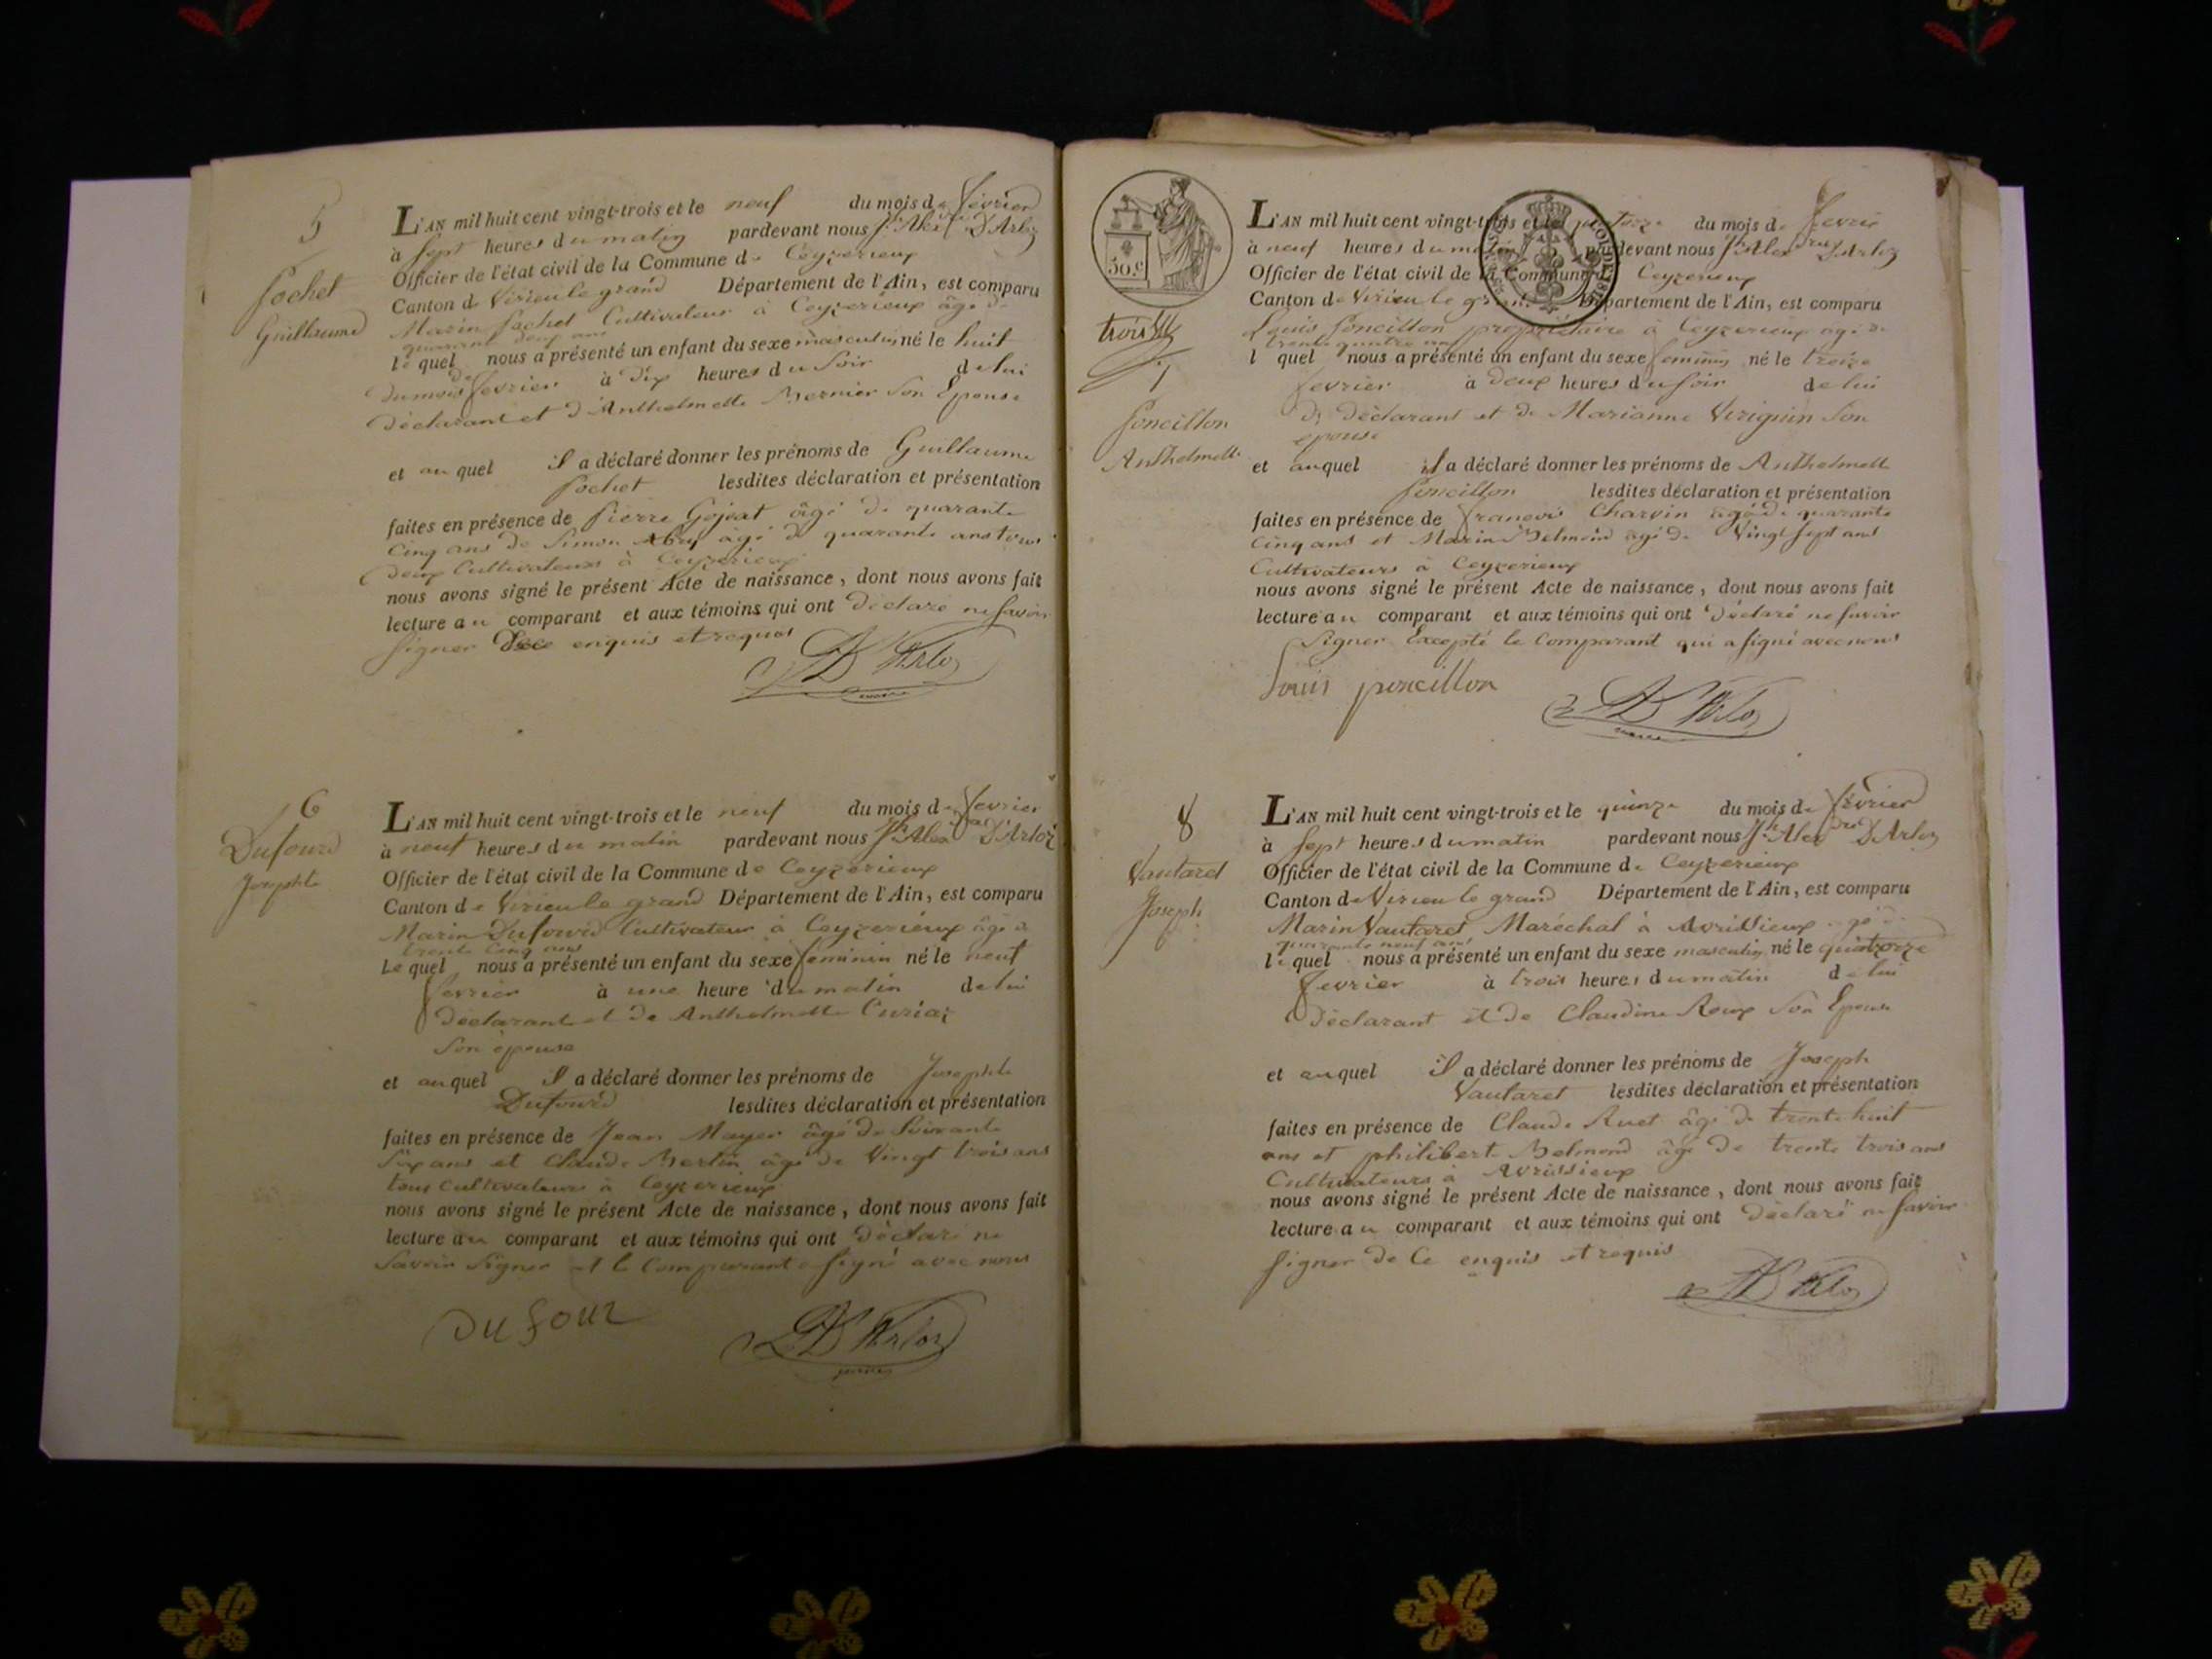 5
Pochet
Guillaume
L'AN mil huit cent vingt-trois et le neuf du mois de février
à Sept heures du matin pardevant nous Jh Alexdre D'Arloz
Officier de l'état civil de la Commune de Ceyzerieux
Canton de Virieu le grand Département de l'Ain, est comparu
Marin Pochet Cultivateur à Ceyzerieux âgé de
quarante deux ans
lequel nous a présenté un enfant du sexe masculin né le huit
du mois de fevrier à dix heures du Soir de lui
Déclarant et d'Anthelmette Bernier Son Epouse
et auquel il a déclaré donner les prénoms de Guillaume
Pochet lesdites déclaration et présentation
faites en présence de Pierre Gojoat âgé de quarante
Cinq ans de Simon Abry âgé de quarante ans tous
Deux Cultivateurs à Ceyzerieux
nous avons signé le présent Acte de naissance, dont nous avons fait
lecture au comparant et aux témoins qui ont Déclaré ne savoir
Signer De ce enquis et requis
D'Arloz
6
Dufourd
Josephte
L'AN mil huit cent vingt-trois et le neuf du mois de fevrier
à neuf heures du matin pardevant nous Jh Alexdre D'Arloz
Officier de l'état civil de la Commune de Ceyzerieux
Canton de Virieu le grand Département de l'Ain, est comparu
Marin Dufourd Cultivateur à Ceyzerieux âgé de
trente Cinq ans
Lequel nous a présenté un enfant du sexe feminin né le neuf
fevrier à une heure du matin de lui
Déclarant et de Anthelmette Curiaz
Son épouse
et auquel il a déclaré donner les prénoms de Josephte
Dufourd lesdites déclaration et présentation
faites en présence de Jean Mayer âgé de Soixante
Six ans et Claude Berlin âgé de Vingt trois ans
tous cultivateurs à Ceyzerieux
nous avons signé le présent Acte de naissance, dont nous avons fait
lecture au comparant et aux témoins qui ont Déclaré ne
Savoir Signer et le Comparant a signé avec nous
DUFOUR
D'Arloz
50.c
trois
7
Poncillon
Anthelmette
L'AN mil huit cent vingt-trois et le quatorze du mois de fevrier
à neuf heures du matin pardevant nous Jh Alexdre D'Arloz
Officier de l'état civil de la Commune de Ceyzerieux
Canton de Virieu le grand Département de l'Ain, est comparu
Louis Poncillon propriétaire à Ceyzerieux âgé de
trente quatre ans
lequel nous a présenté un enfant du sexe feminin né le treize
fevrier à deux heures du soir de lui
Dt déclarant et de Marianne Virignin Son
épouse
et auquel il a déclaré donner les prénoms de Anthelmette
Poncillon lesdites déclaration et présentation
faites en présence de françois Charvin âgé de quarante
Cinq ans et Marin Belmond âgé de Vingt sept ans
Cultivateurs à Ceyzerieux
nous avons signé le présent Acte de naissance, dont nous avons fait
lecture au comparant et aux témoins qui ont Déclaré ne savoir
Signer Excepté le Comparant qui a signé avec nous
Louis poncillon
D'Arloz
8
Vautaret
Joseph
L'AN mil huit cent vingt-trois et le quinze du mois de février
à Sept heures du matin pardevant nous Jh Alexdre D'Arloz
Officier de l'état civil de la Commune de Ceyzerieux
Canton de Virieu le grand Département de l'Ain, est comparu
Marin Vautaret Maréchal à Avrissieux âgé de
quarante neuf ans
lequel nous a présenté un enfant du sexe masculin né le quatorze
fevrier à trois heures du matin de lui
Déclarant et de Claudine Roux Son Epouse
et auquel il a déclaré donner les prénoms de Joseph
Vautaret lesdites déclaration et présentation
faites en présence de Claude Ruet âgé de trente huit
ans et philibert Belmond âgé de trente trois ans
Cultivateurs à Avrissieux
nous avons signé le présent Acte de naissance, dont nous avons fait
lecture au comparant et aux témoins qui ont Déclaré ne savoir
Signer de Ce enquis et requis
D'Arloz